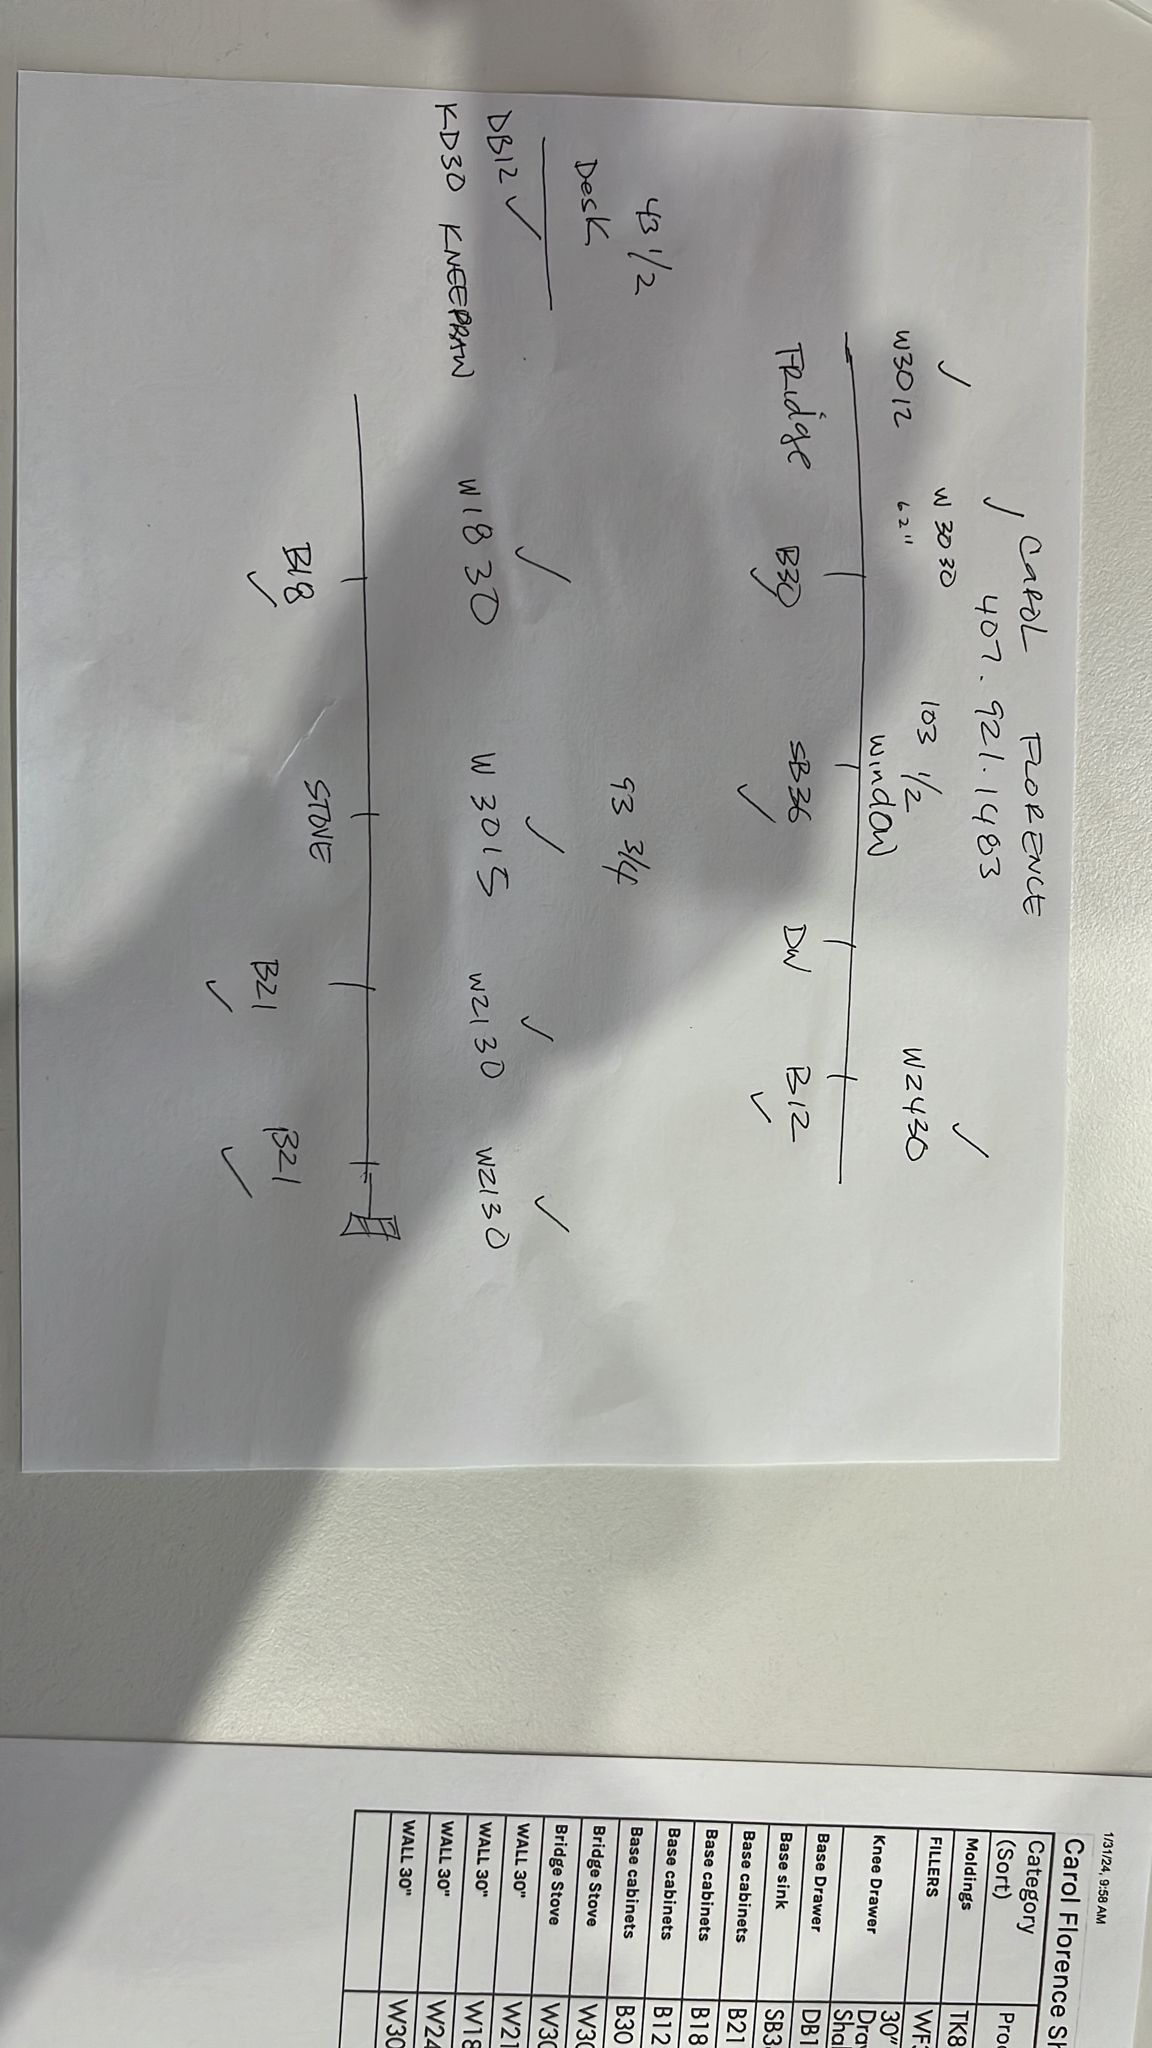 Carol FLORENCE
407. 921. 1483
W3012 W3030 103 1/2 W2430
62"
window
Fridge B30 SB36 DW B12
43 1/2
Desk
93 3/4
DB12
KD30 KNEEDRAW
W1830 W3015 W2130 W2130
B18 STOVE B21 B21
1/31/24, 9:58 AM
Carol Florence Sh
Category
(Sort) Proc
Moldings TK8
FILLERS WF3
Knee Drawer 30"
Drav
Shal
Base Drawer DB1
Base sink SB3
Base cabinets B21
Base cabinets B18
Base cabinets B12
Base cabinets B30
Bridge Stove W30
Bridge Stove W30
WALL 30" W21
WALL 30" W18
WALL 30" W24
WALL 30" W30